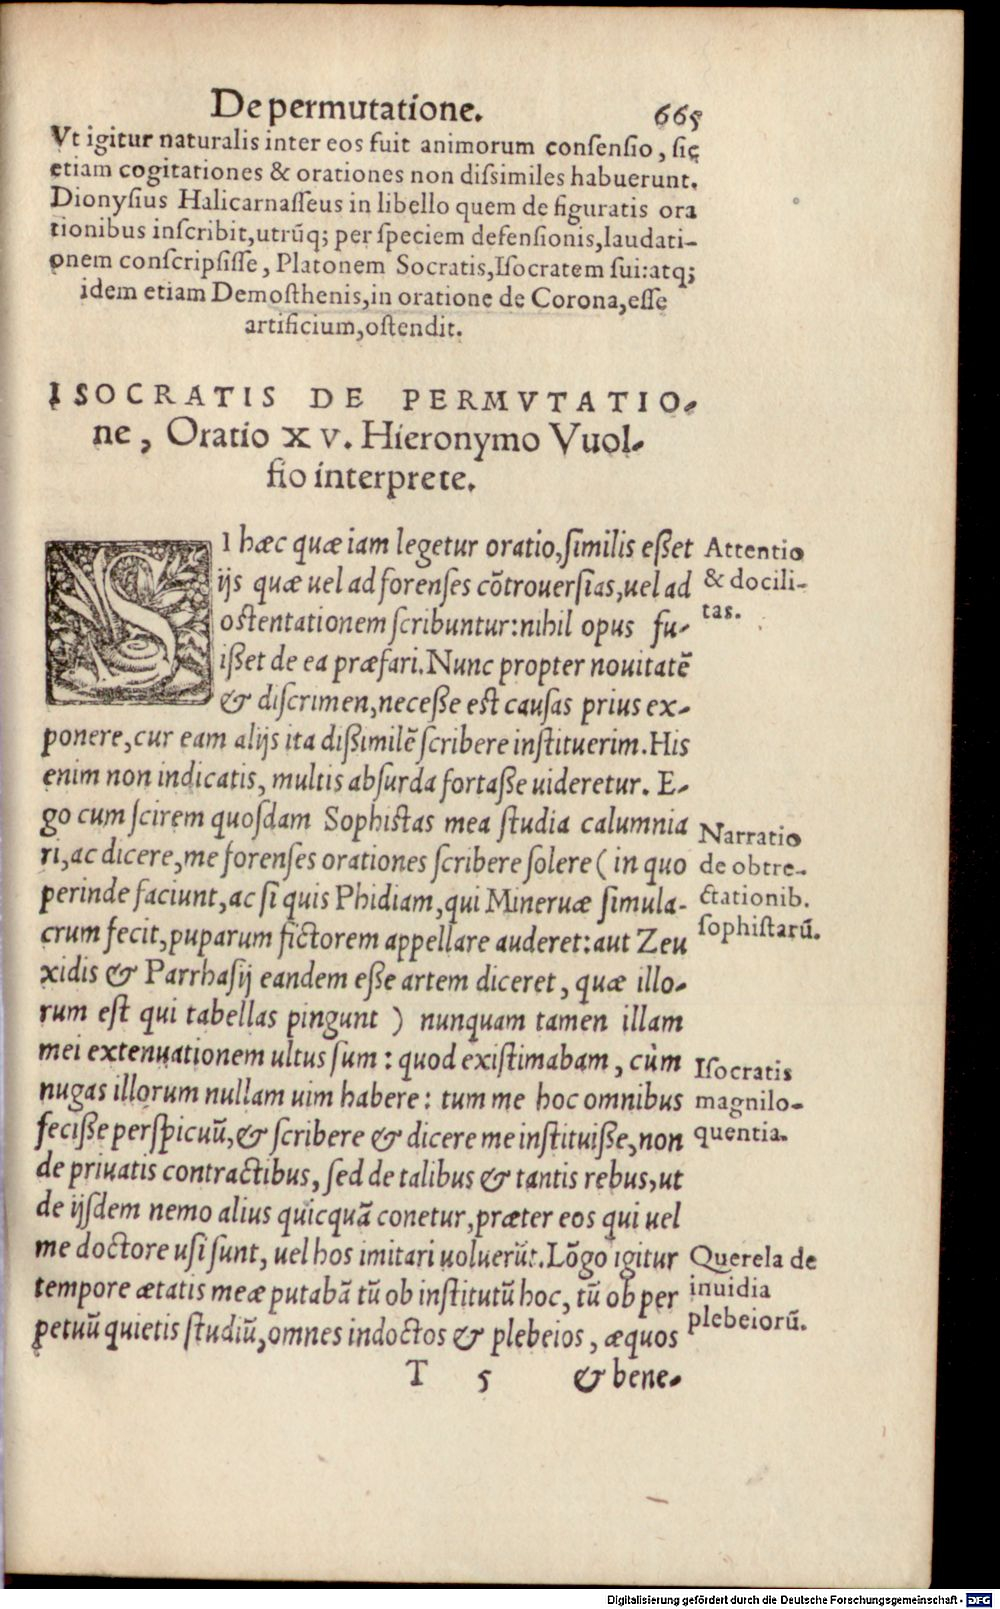 De permutatione. 665
Vt igitur naturalis inter eos fuit animorum consensio, sic
etiam cogitationes & orationes non dissimiles habuerunt.
Dionysius Halicarnasseus in libello quem de figuratis ora
tionibus inscribit,utrũq; per speciem defensionis,laudati-
onem conscripsisse, Platonem Socratis,Isocratem sui:atq;
idem etiam Demosthenis,in oratione de Corona,esse
artificium,ostendit.
ISOCRATIS DE PERMVTATIO-
ne, Oratio XV. Hieronymo Vuol-
fio interprete.
SI hæc quæ iam legetur oratio,similis eßet
ijs quæ uel ad forenses cõtrouersias,uel ad
ostentationem scribuntur:nihil opus fu-
ißet de ea præfari.Nunc propter nouitatẽ
& discrimen,neceße est causas prius ex-
ponere,cur eam alijs ita dißimilẽ scribere instituerim.His
enim non indicatis, multis absurda fortaße uideretur. E-
go cum scirem quosdam Sophistas mea studia calumnia
ri,ac dicere,me forenses orationes scribere solere ( in quo
perinde faciunt,ac si quis Phidiam,qui Mineruæ simula-
crum fecit,puparum fictorem appellare auderet:aut Zeu
xidis & Parrhasij eandem eße artem diceret, quæ illo-
rum est qui tabellas pingunt ) nunquam tamen illam
mei extenuationem ultus sum: quod existimabam, cùm
nugas illorum nullam uim habere: tum me hoc omnibus
feciße perspicuũ,& scribere & dicere me instituiße,non
de priuatis contractibus, sed de talibus & tantis rebus,ut
de ijsdem nemo alius quicquã conetur,præter eos qui uel
me doctore usi sunt, uel hos imitari uoluerũt.Lõgo igitur
tempore ætatis meæ putabã tũ ob institutũ hoc, tũ ob per
petuũ quietis studiũ,omnes indoctos & plebeios, æquos
T 5 & bene-
Attentio
& docili-
tas.
Narratio
de obtre-
ctationib.
sophistarũ.
Isocratis
magnilo-
quentia.
Querela de
inuidia
plebeiorũ.
Digitalisierung gefördert durch die Deutsche Forschungsgemeinschaft - DFG